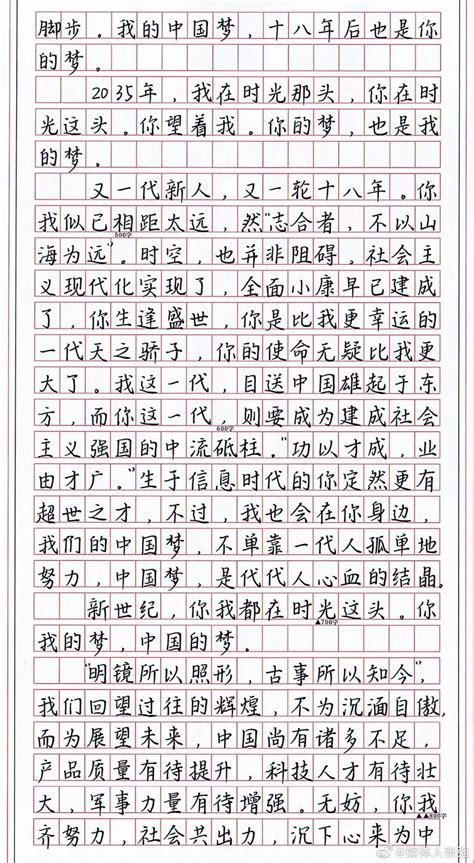 脚步。我的中国梦，十八年后也是你
的梦。
2035年，我在时光那头，你在时
光这头。你望着我。你的梦，也是我
的梦。
又一代新人，又一轮十八年。你
我似已相距太远，然“志合者，不以山
500字
海为远”。时空，也并非阻碍，社会主
义现代化实现了，全面小康早已建成
了，你生逢盛世，你是比我更幸运的
一代天之骄子，你的使命无疑比我更
大了。我这一代，目送中国雄起于东
方，而你这一代，则要成为建成社会
600字
主义强国的中流砥柱。“功以才成，业
由才广。”生于信息时代的你定然更有
超世之才，不过，我也会在你身边，
我们的中国梦，不单靠一代人孤单地
努力，中国梦，是代代人心血的结晶。
新世纪，你我都在时光这头。你
▲700字
我的梦，中国的梦。
“明镜所以照形，古事所以知今”，
我们回望过往的辉煌，不为沉湎自傲，
而为展望未来，中国尚有诸多不足，
产品质量有待提升，科技人才有待壮
大，军事力量有待增强。无妨，你我
▲▲800字
齐努力，社会共出力，沉下心来为中